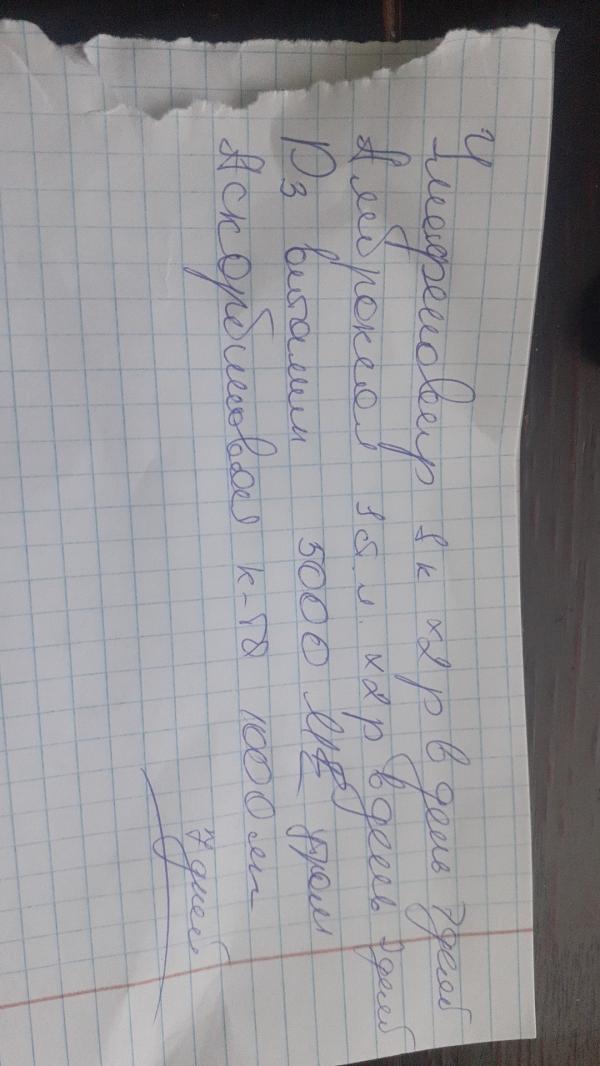 Умефеновир 1 к х2 р в день 7 дней
Амброксол 1 т. х2р в день 7 дней
D3 витамин 5000 МЕ утром
Аскорбиновая к-та 1000 мг
7 дней